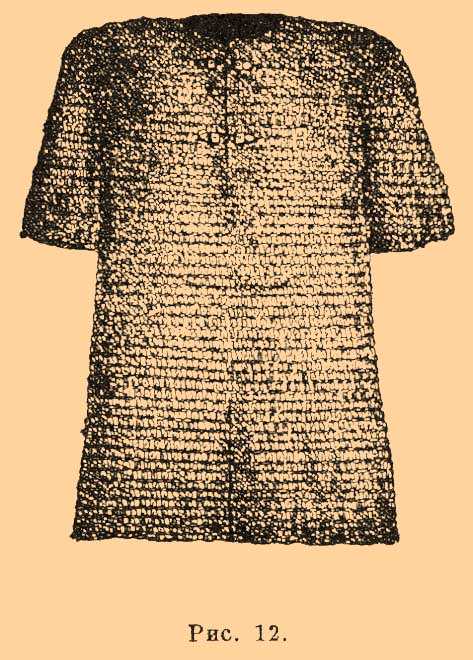 Рис. 12.